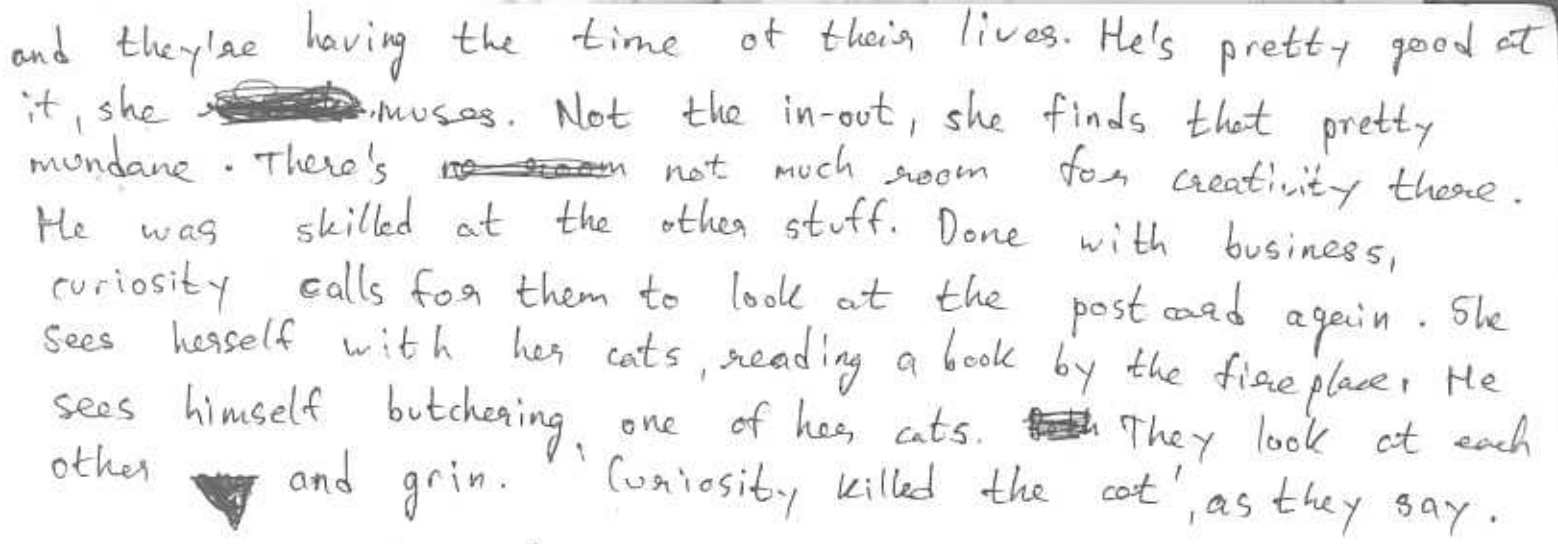 and they're having the time of their lives. He's pretty good at
it, she muses. Not the in-out, she finds that pretty
mundane. There's no room not much room for creativity there.
He was skilled at the other stuff. Done with business,
curiosity calls for them to look at the postcard again. She
sees herself with her cats, reading a book by the fireplace. He
sees himself butchering one of her cats. They look at each
other and grin. 'Curiosity killed the cat', as they say.